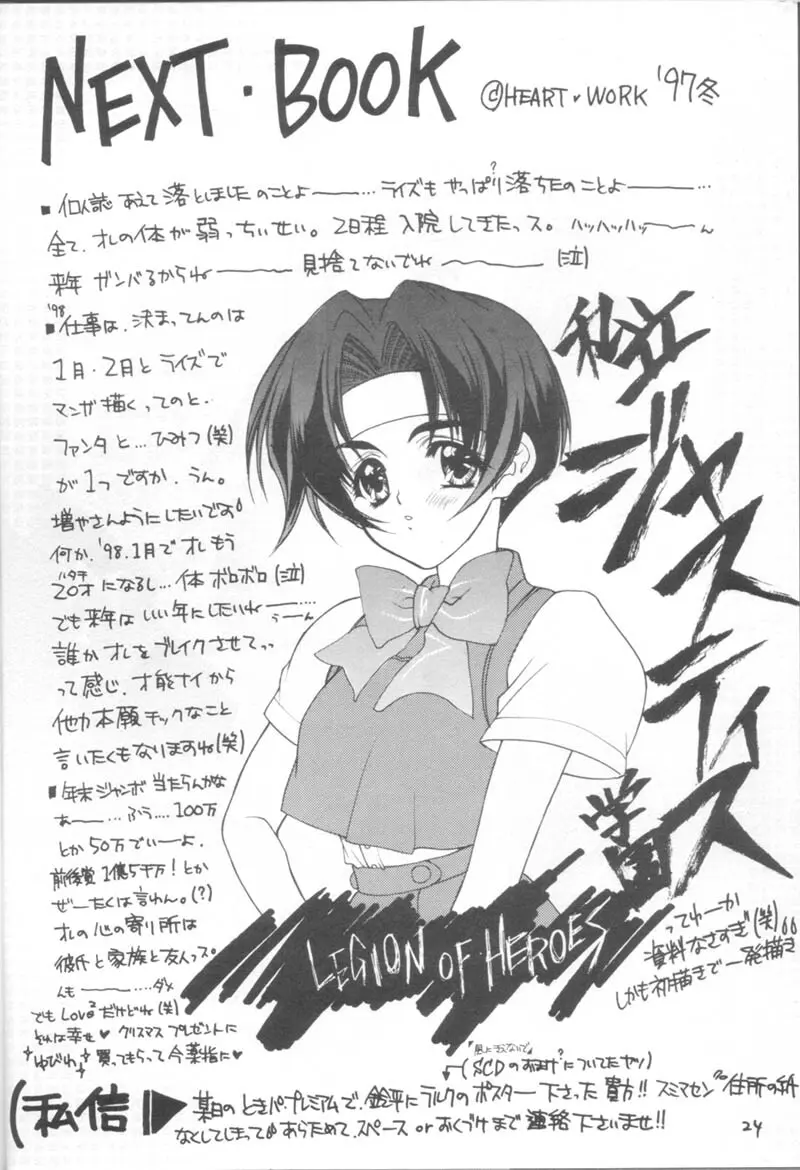 NEXT・BOOK
©HEART♥WORK '97冬
■個人誌 あえて落としましたのことよ――…ライズもやっぱり?落ちたのことよ――…
全て、オレの体が弱っちぃせい。2日程入院してきたっス。ハッハッハッ――ん
来年ガンバるからね――見捨てないでね――(泣)
■'98仕事は、決まってんのは
1月・2月とライズで
マンガ描くってのと、
ファンタと…ひみつ(笑)
が1つですか、うん。
増やさんようにしたいです
何か、'98.1月でオレもう
20才になるし…体ボロボロ(泣)
ハタチ
でも来年はいい年にしたいね――…
うーん
誰かオレをブレイクさせてっ
って感じ、才能ナイから
他力本願チックなこと
言いたくもなりますね(笑)
■年末ジャンボ当たらんかな
あー…ふぅ…100万
とか50万でいーよ。
前後賞1億5千万!とか
ぜーたくは言わん。(?)
オレの心の寄り所は
彼氏と家族と友人っス。
んも――…ダメ
でもLove²だけどね(笑)
それは幸せ♥クリスマスプレゼントに
ゆびわ買ってもらって今薬指に♥
私立
ジャスティス
学園
LEGION OF HEROES
ってゆーか
資料なさすぎ(笑)
しかも初描きで一発描き
(SCDのおまけ?についてたヤツ)
(私信▶
某日のときパプレミアムで、鈴平にラルクのポスター下さった貴方!!スミマセン住所の紙
なくしてしまってあらためて、スペースorおくづけまで連絡下さいませ!!
24